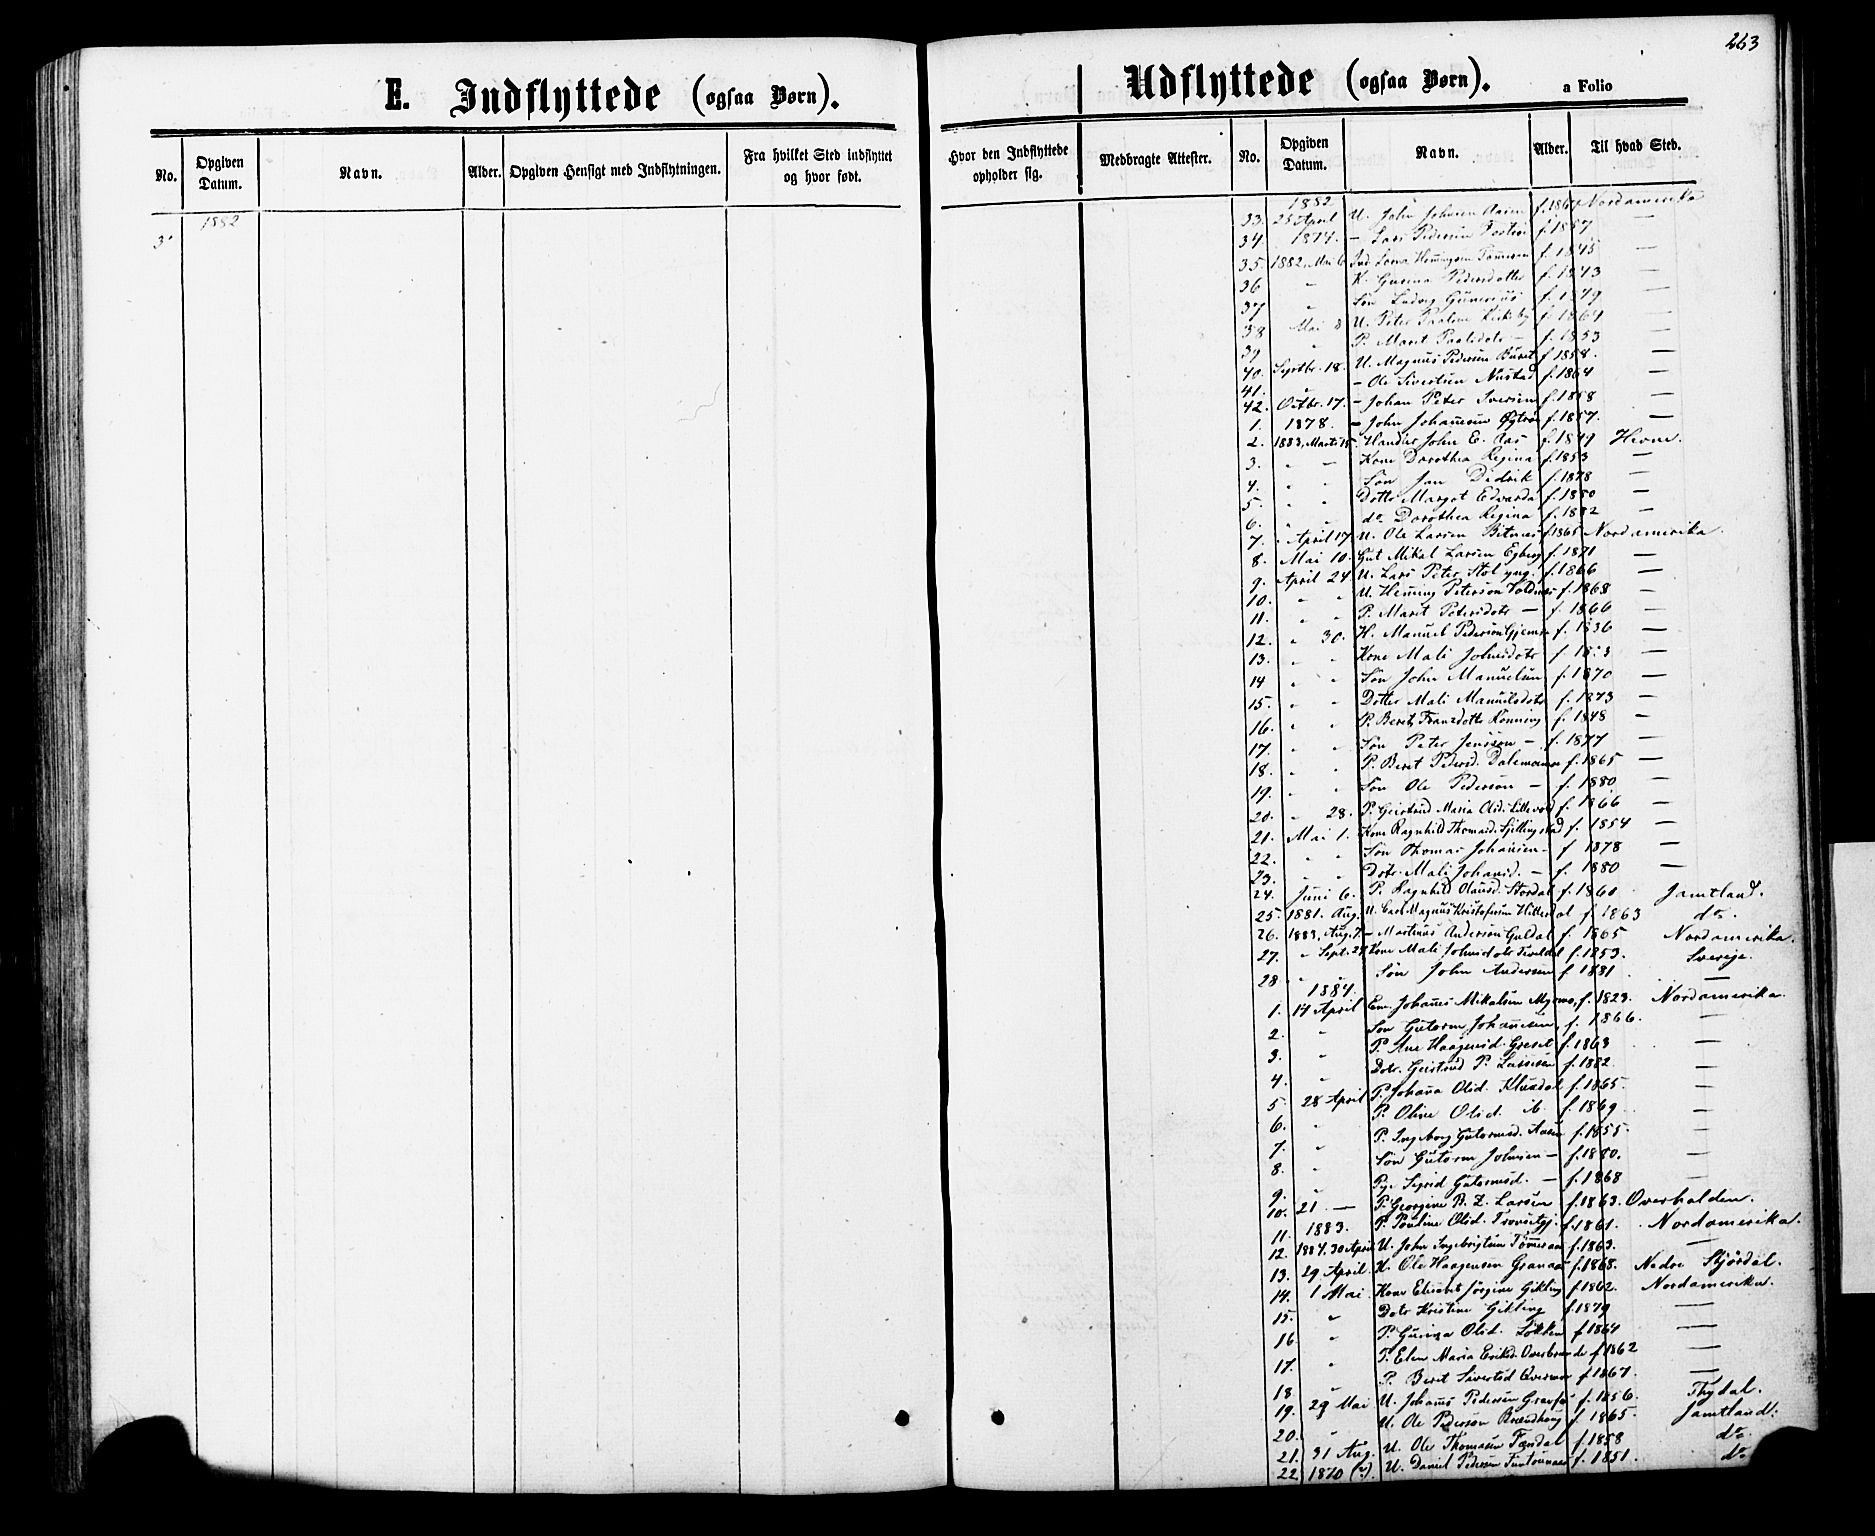 263
E. Indflyttede (ogsaa Børn).
No. Opgiven Datum. Navn. Alder. Opgiven Hensigt med Indflytningen. Fra hvilket Sted indflyttet og hvor født.
1882
3.
Udflyttede (ogsaa Børn). a Folio
Hvor den Indflyttede opholder sig. Medbragte Attester. No. Opgiven Datum. Navn. Alder. Til hvad Sted.
1882
33. 25 April U. John Johnsen Aasen f. 1864 Nordamerika
34. 1874. — Lars Pedersen f. 1857 —
35. 1882, Mai 6 Ind. f. 1845 —
36 " K. Gurina Pedersdatter f. 1843 —
37 " Søn Ludvig Gunerius f. 1879 —
38 Mai 8 U. Peter Paulsen Kirkeby f. 1864 —
39 " P. Marit Paulsdotr — f. 1853 —
40. Septbr. 18. U. Magnus Pedersen Buret f. 1858. —
41. " — Ole Sivertsen Nustad f. 1864 —
42. Octbr. 17. — Johan Peter Iversen f. 1858 —
1. 1878. — John Johannesen f. 1857. —
2. 1883, Marts 15. Handler John E. Aas f. 1849 Hevne.
3. " — Kone Dorothea Regina f. 1853 —
4. " " Søn Jon Didrik f. 1878 —
5. " " Dotter Margot Edvarda f. 1880 —
6. " " do Dorothea Regina f. 1882 —
7. " April 17 U. Ole Larsen f. 1865 Nordamerika.
8. Mai 10. Gut Mikal Larsen Egberg f. 1871 —
9. April 24 U. Lars Peter Stol yng. f. 1866 —
10. " " U. Henning Petersen f. 1868 —
11. " " P. Marit Petersdotr — f. 1866 —
12. " 30. H. Manuel Pedersen f. 1836 —
13. " " Kone Mali Johnsdotr f. —
14 " " Søn John Manuelsen f. 1870 —
15. " " Dotter Mali Manuelsdotr f. 1873 —
16. " " P. Beret Fransdotr Rønning f. 1848 —
17. " " Søn Peter Jensen — f. 1877 —
18. " " P. Beret Pedersd. Dalemanen f. 1865 —
19. " " Søn Ole Pedersen — f. 1880 —
20. " 28. P. Gjertrud Maria Olsd. Lillevold f. 1866 —
21. Mai 1. Kone Ragnhild Thomasd. f. 1854 —
22. " " Søn Thomas Johansen — f. 1878 —
23. " " Dotr Mali Johansd. — f. 1880 —
24. Juni 6. P. Ragnhild Olausd. Stordal f. 1860 Jamtland.
25. 1881. Aug. U. Carl Magnus Kristofersen Hilterdal f. 1863 do.
26. 1883, Aug. 7. — Martinus Andersen Guldal f. 1865 Nordamerika.
27. " Sept. 27 Kone Mali Johnsdotr Tiveldal f. 1853. Sverige.
28. " Søn John Andersen f. 1881 —
1884.
1. 14 April Em. Johannes Mikalsen Myrmo, f. 1823. Nordamerika.
2. " Søn Guttorm Johannesen, f. 1866. —
3. " P. Ane Haagensd. Græsli f. 1863 —
4. " Dotr. Gjertrud P. Larssen f. 1882. —
5. 28 April P. Johana Olsd. Kluxdal f. 1865. —
6. " P. Oline Olsd. ib. f. 1869 —
7. " P. Ingeborg Guttormsd. Aasen f. 1855. —
8. " Søn Guttorm Johnsen — f. 1880. —
9. " Pige Sigrid Guttormsd. — f. 1868 —
10. 21 — P. Georgine B. Z. Larsen f. 1863. Overhalden.
11. 1883. P. Pauline Olsd. f. 1861. Nordamerika.
12. 1884, 30 April U. John Ingebrigtsen f. 1863. —
13. 29 April. U. Ole Haagensen Granaas f. 1868. Nedre Stjørdal.
14. 1 Mai Kone Elisabet Jørgine Gikling f. 1862. Nordamerika.
15. " Dotr Kristine Gikling f. 1879 —
16 " P. Guruna Olsd. Løkken f. 1864 —
17. " P. Elen Maria Eriksd. f. 1862 —
18 " P. Beret Sivertsd f. 1867. —
19. 29 Mai U. Johannes Pedersen f. 1856. Thydal.
20. " U. Ole Pedersen Brændhaug f. 1865. Jamtland.
21. 31 Aug. U. Ole Thomasen f. 1858 do.
22. 1870 (?). U. Daniel Pedersen f. 1851. do.